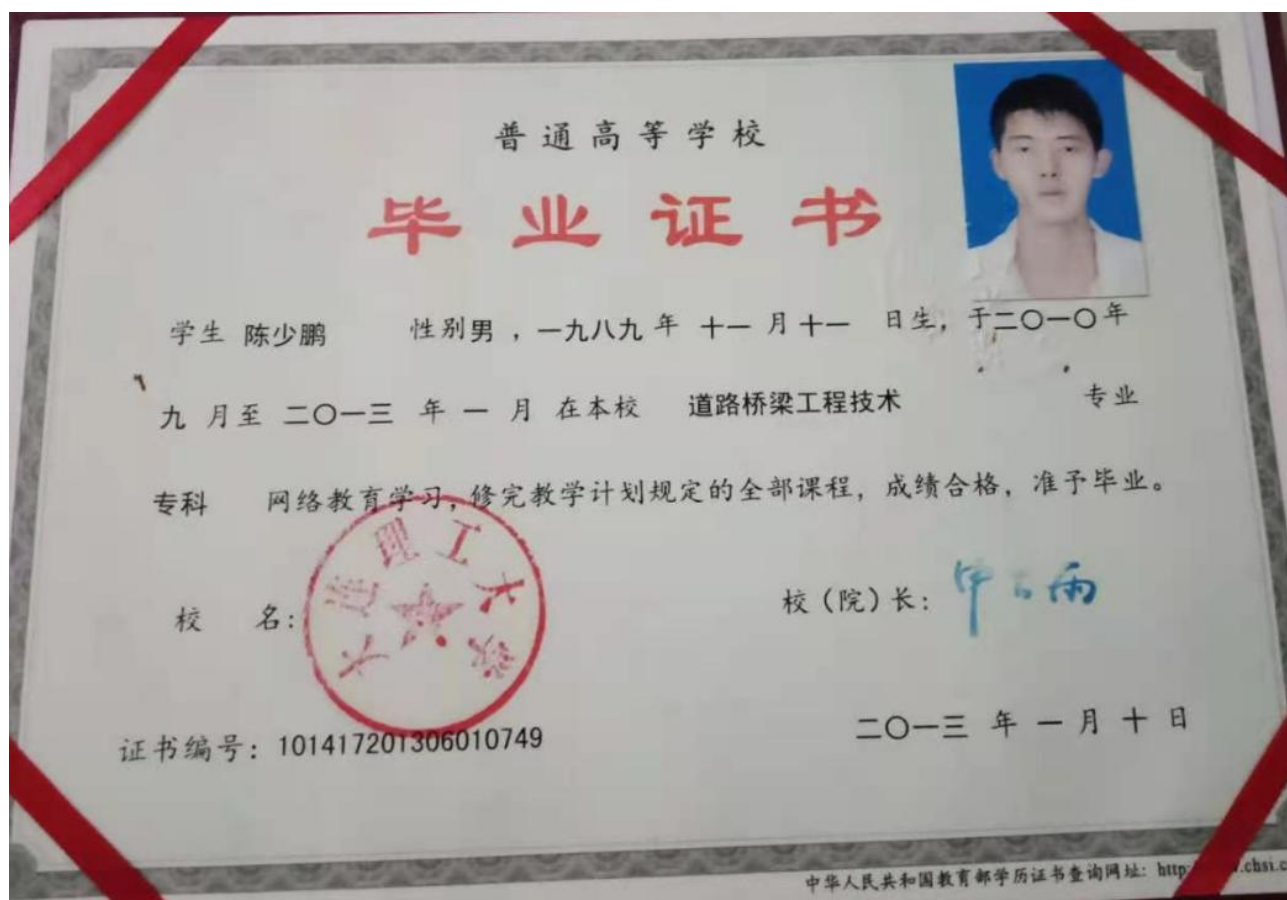 普通高等学校
毕业证书
学生 陈少鹏 性别男，一九八九年 十一 月十一 日生，于二〇一〇年
九 月至 二〇一三 年 一 月 在本校 道路桥梁工程技术 专业
专科 网络教育学习，修完教学计划规定的全部课程，成绩合格，准予毕业。
大连理工大学
校 名： 校（院）长：
证书编号：101417201306010749 二〇一三 年 一 月 十 日
中华人民共和国教育部学历证书查询网址：http: